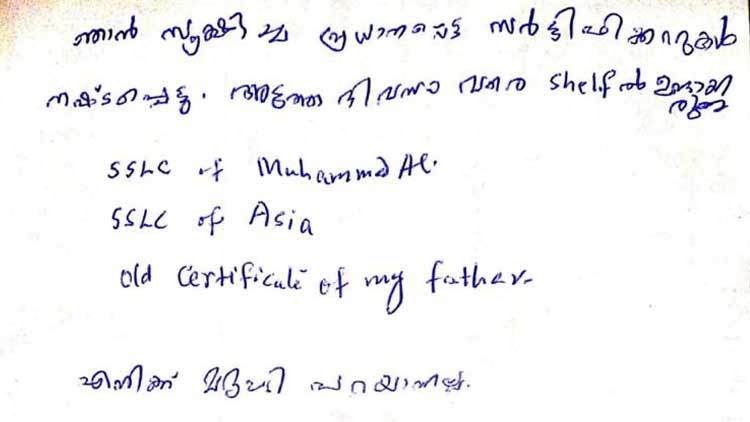 ഞാൻ സൂക്ഷിച്ച പ്രധാനപ്പെട്ട സർട്ടിഫിക്കറ്റുകൾ
നഷ്ടപ്പെട്ടു. അടുത്ത ദിവസം വരെ shelfൽ ഉണ്ടായിരുന്നു
SSLC of Muhammed Ali.
SSLC of Asia
old certificate of my father.
എനിക്ക് പറയാനുള്ളത്.